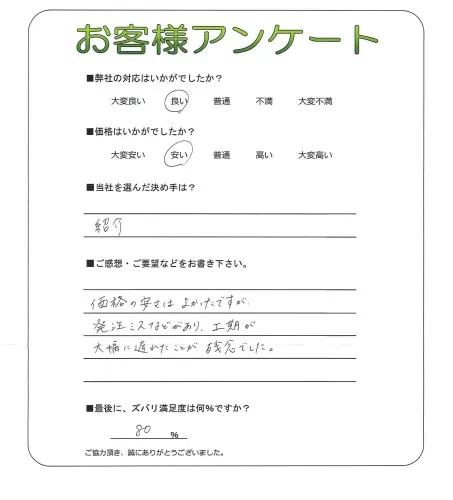 お客様アンケート
■弊社の対応はいかがでしたか?
大変良い 良い 普通 不満 大変不満
■価格はいかがでしたか?
大変安い 安い 普通 高い 大変高い
■当社を選んだ決め手は?
紹介
■ご感想・ご要望などをお書き下さい。
価格の安さはよかったですが、
発注ミスなどがあり、工期が
大幅に遅れたことが残念でした。
■最後に、ズバリ満足度は何%ですか?
80 %
ご協力頂き、誠にありがとうございました。